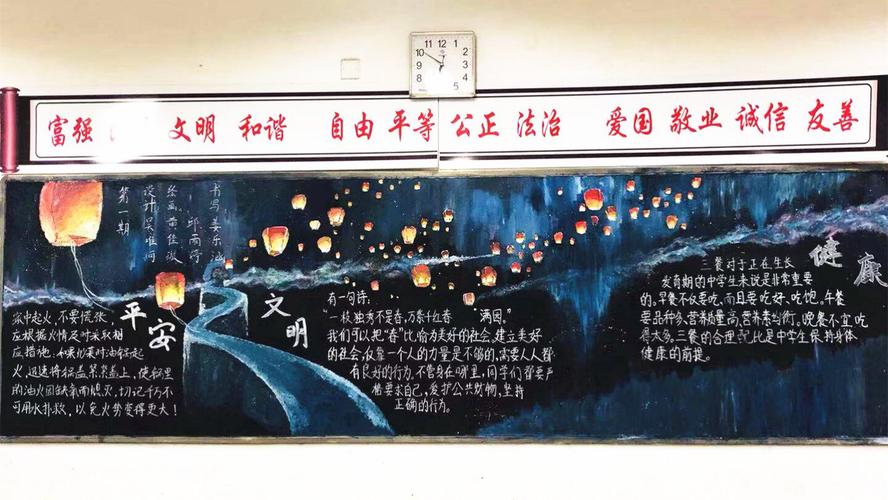 11 12 1
10 2
9 3
8 4
7 6 5
富强 文明 和谐 自由 平等 公正 法治 爱国 敬业 诚信 友善
第一期
设计
绘画 黄佳
书写 姜乐
邱雨
平安
家中起火,不要慌张,
应根据火情及时采取相
应措施。如果炒菜时油锅起
火,迅速将锅盖紧紧盖上,使锅里
的油火因缺氧而熄灭,切记千万不
可用水扑救,以免火势变得更大!
文明
有一句诗:
“一枝独秀不是春,万紫千红春满园。”
我们可以把“春”比喻为美好的社会,建立美好
的社会,仅靠一个人的力量是不够的,需要人人都
有良好的行为,不管身在哪里,同学们都要严
格要求自己,爱护公共财物,坚持
正确的行为。
健康
三餐对于正在生长
发育期的中学生来说是非常重要
的。早餐不仅要吃,而且要吃好、吃饱。午餐
要品种多、营养质量高、营养素均衡。晚餐不宜吃
得太多。三餐的合理配比是中学生保持身体
健康的前提。